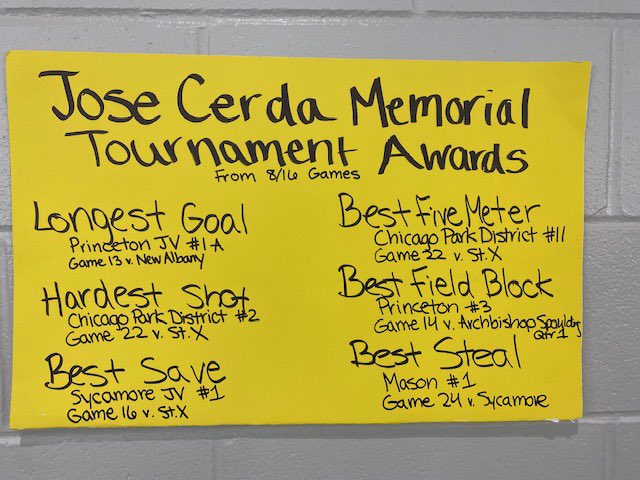 Jose Cerda Memorial
Tournament Awards
From 8/16 Games
Longest Goal
Princeton JV #1A
Game 13 v. New Albany
Hardest Shot
Chicago Park District #2
Game 22 v. St.X
Best Save
Sycamore JV #1
Game 16 v. St.X
Best Five Meter
Chicago Park District #11
Game 22 v. St.X
Best Field Block
Princeton #3
Game 14 v. Archbishop Spaulding
Qtr. 1
Best Steal
Mason #1
Game 24 v. Sycamore